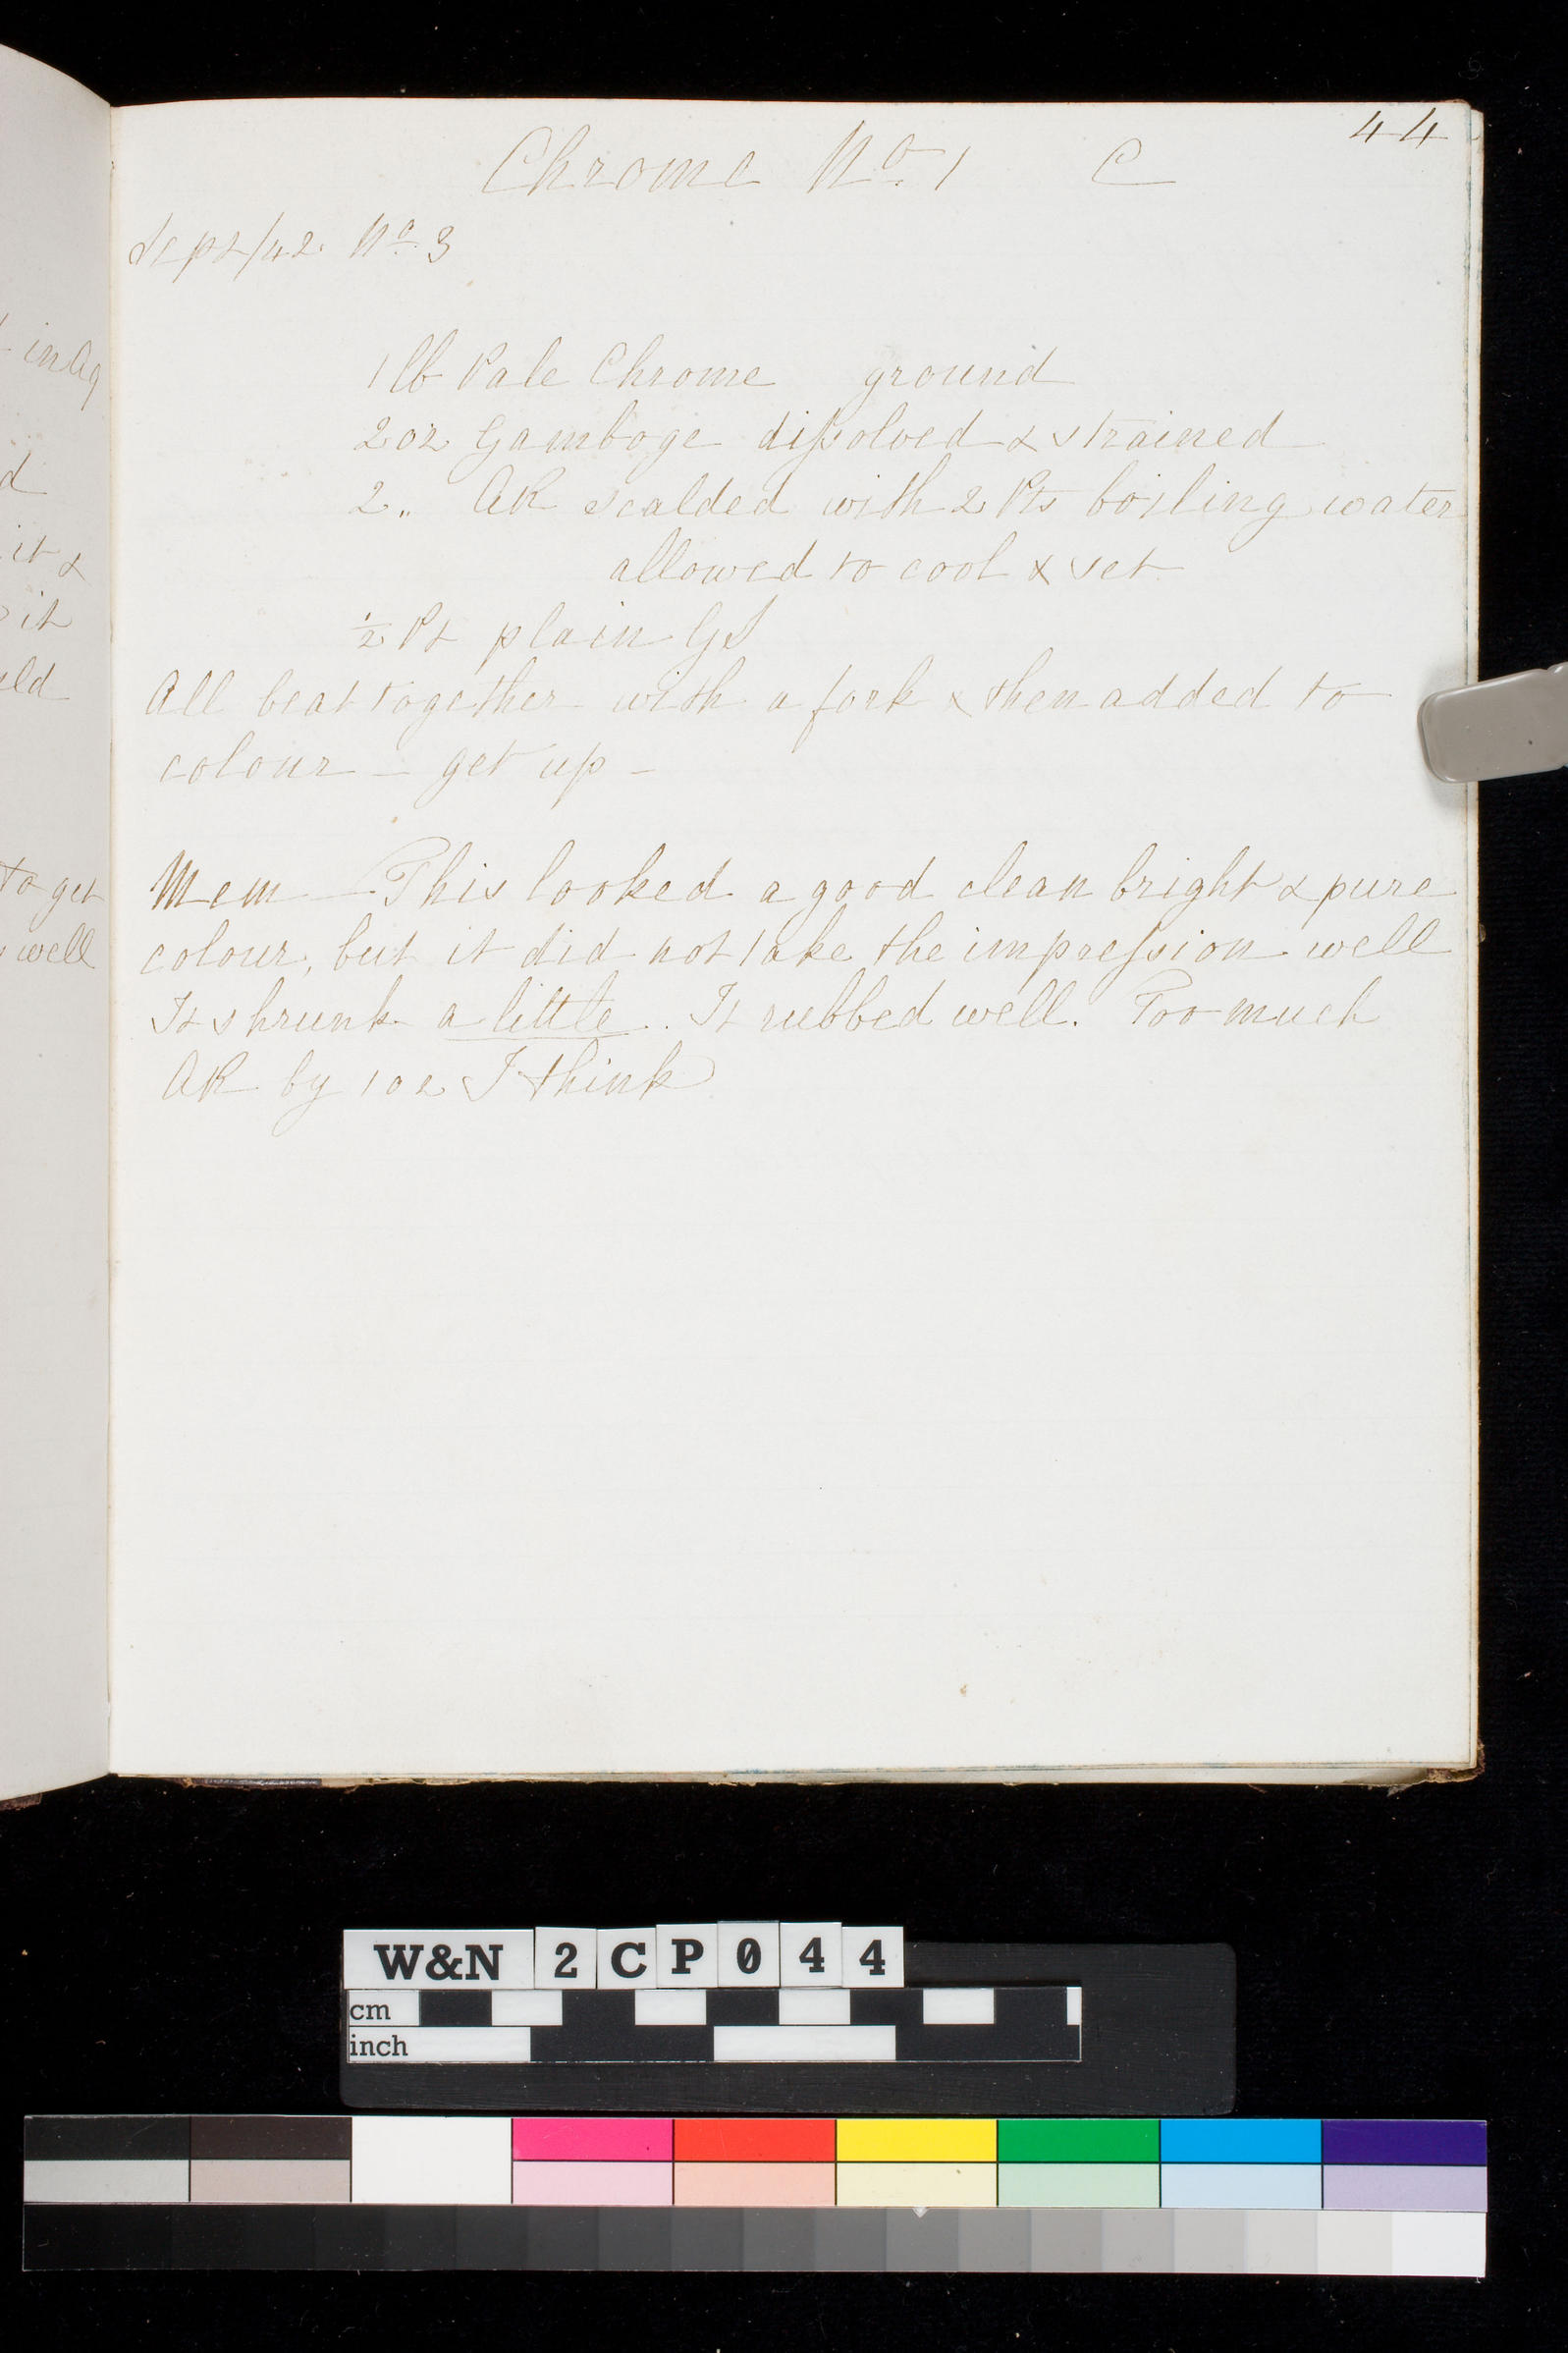 44
Chrome No. 1 C
Sept/42. No. 3
1 lb Pale Chrome ground
2 oz Gamboge difsolved & strained
2 „ AR scalded with 2 Pts boiling water
allowed to cool & set
½ Pt plain GS
All beat together with a fork & then added to
colour – get up –
Mem — This looked a good clean bright & pure
colour, but it did not take the imprefsion well
It shrunk a little. It rubbed well. Too much
AR by 1 oz I think
in Aq
d
it &
it
to get
well
W&N 2CP044
cm
inch